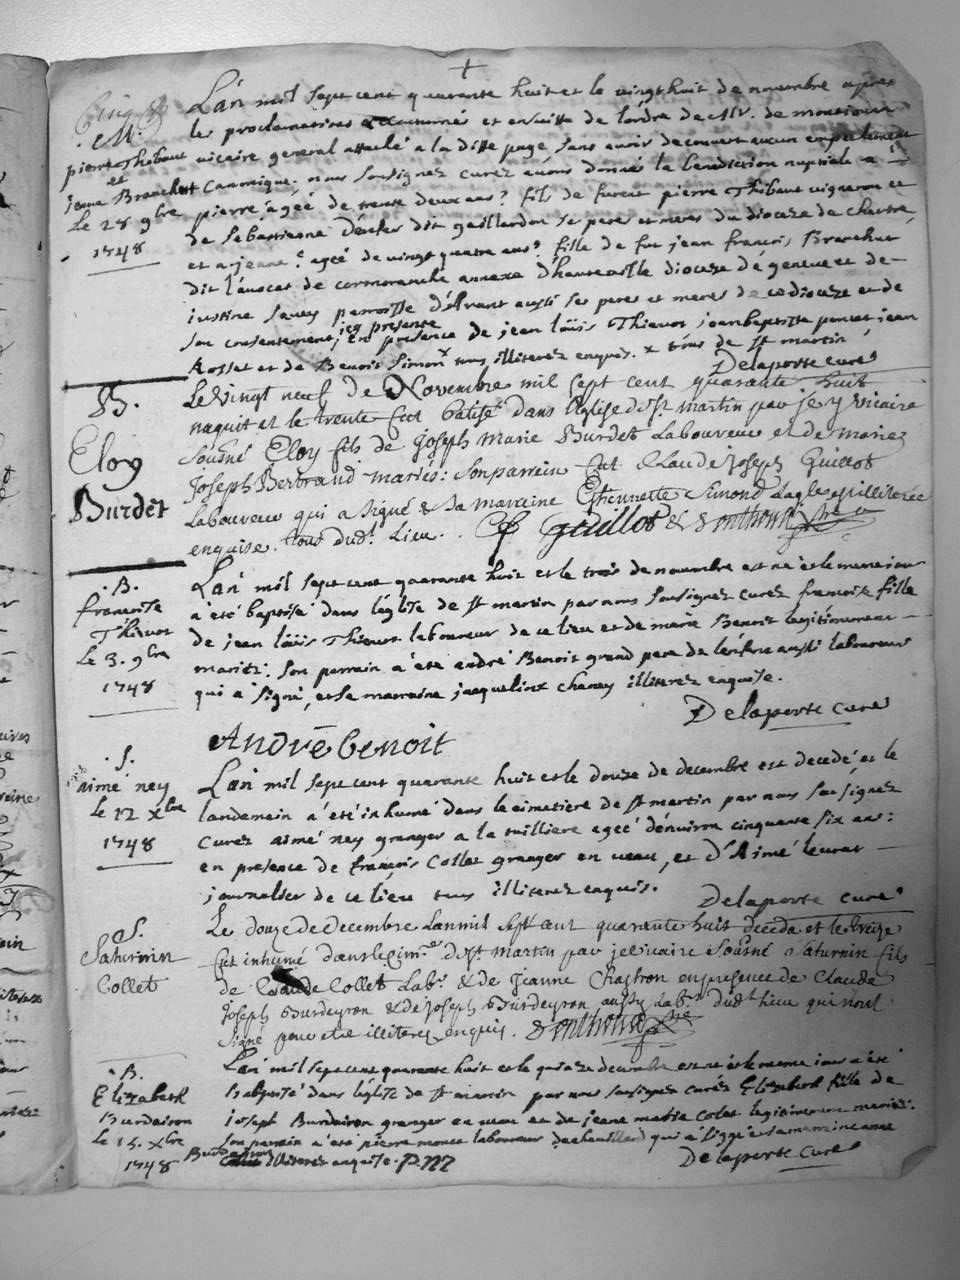 L'an mil sept cent quarante huit et le vingt huit de novembre après
. M.
les proclamations accoutumés et ensuitte de l'ordre de Mr. de montionr
pierre Thibaut
vicaire general attaché a la ditte page sans avoir decouvert aucun empechement
et
jeanne Branchut
Canonique, nous soussignez curez avons donné la benediction nuptiale à
Le 28 9bre
pierre, ageé de trente deux ans, fils de furent pierre Thibaut vigneron et
1748
de Sebastienne dit gaillardon ses peres et meres du dioceze de
et a jeane ageé de vingt quatre ans, fille de fut jean francois Branchut
dit l'avocat de cormoranche annexe d'hauteville dioceze de geneve et de
justine savey parroisse d'Arvant aussi ses peres et meres de ce dioceze et de
son consentement, icy presente en presence de jean loüis Thievot jean baptiste poncet jean
Rosset et de Benoit Simon tous illiterez enquis. x tous de st martin
Delaporte curé
B.
Eloy
Burdet
Le vingt neuf de Novembre mil sept cent quarante huit
naquit et le trente fut batisé dans l'Eglise de st martin par je vicaire
sousné Eloy fils de Joseph Marie Burdet Laboureur et de mariez
Joseph Bertrand mariés: son parrein fut Claude Joseph Guillot
Laboureur qui a signé & sa mareine Etiennette Simond illiterée
enquise. tous dud. Lieu.
Guillot & Donthond
. B.
francoise
Thievot
Le 3. 9bre
1748
L'an mil sept cent quarante huit et le trois de novembre est né et le meme jour
a été baptisé dans l'église de st martin par nous soussignez curez francoise fille
de jean loüis Thievot laboureur de ce lieu et de marie Benoit legitimement
mariéz. son parrain a été andré Benoit grand pere de l'enfant aussi laboureur
qui a signé, et sa marraine jacqueline chaney illiterez enquise.
Delaporte curé
André benoit
. S.
aimé ney
le 12 xbre
1748
L'an mil sept cent quarante huit et le douze de decembre est decedé, et le
landemain a été inhumé dans le cimetiere de st martin par nous soussignez
curez aimé ney granger a la tuilliere ageé d'environ cinquante six ans:
en presence de francois Collet granger en veau, et d'Aimé leurat
journalier de ce lieu tous illiterez enquis.
Delaporte curé
S.
Saturnin
Collet
Le douze de Decembre Lan mil sept cent quarante huit deceda et le treize
fut inhumé dans le cim.re de st martin par je vicaire sousné Saturnin fils
de Claude Collet Lab.r & de Jeanne Chastron en presence de Claude
Joseph Burdeyron & de Joseph Burdeyron aussy Lab.rs dud.t lieu qui n'ont
signé pour etre illiterez enquis. Donthond
. B.
Elizabeth
Burdairon
le 15. xbre
1748
L'an mil sept cent quarante huit et le quinze decembre est né et le meme jour a été
baptisé dans l'église de st martin par nous soussignez curez Elizabeth fille de
joseph Burdairon granger en veau et de jeane marie colet legitimement mariéz.
son parrain a été pierre monet laboureur qui a signé et sa marraine anne
Burdairon illiterez enquise. P. M
Delaporte curé